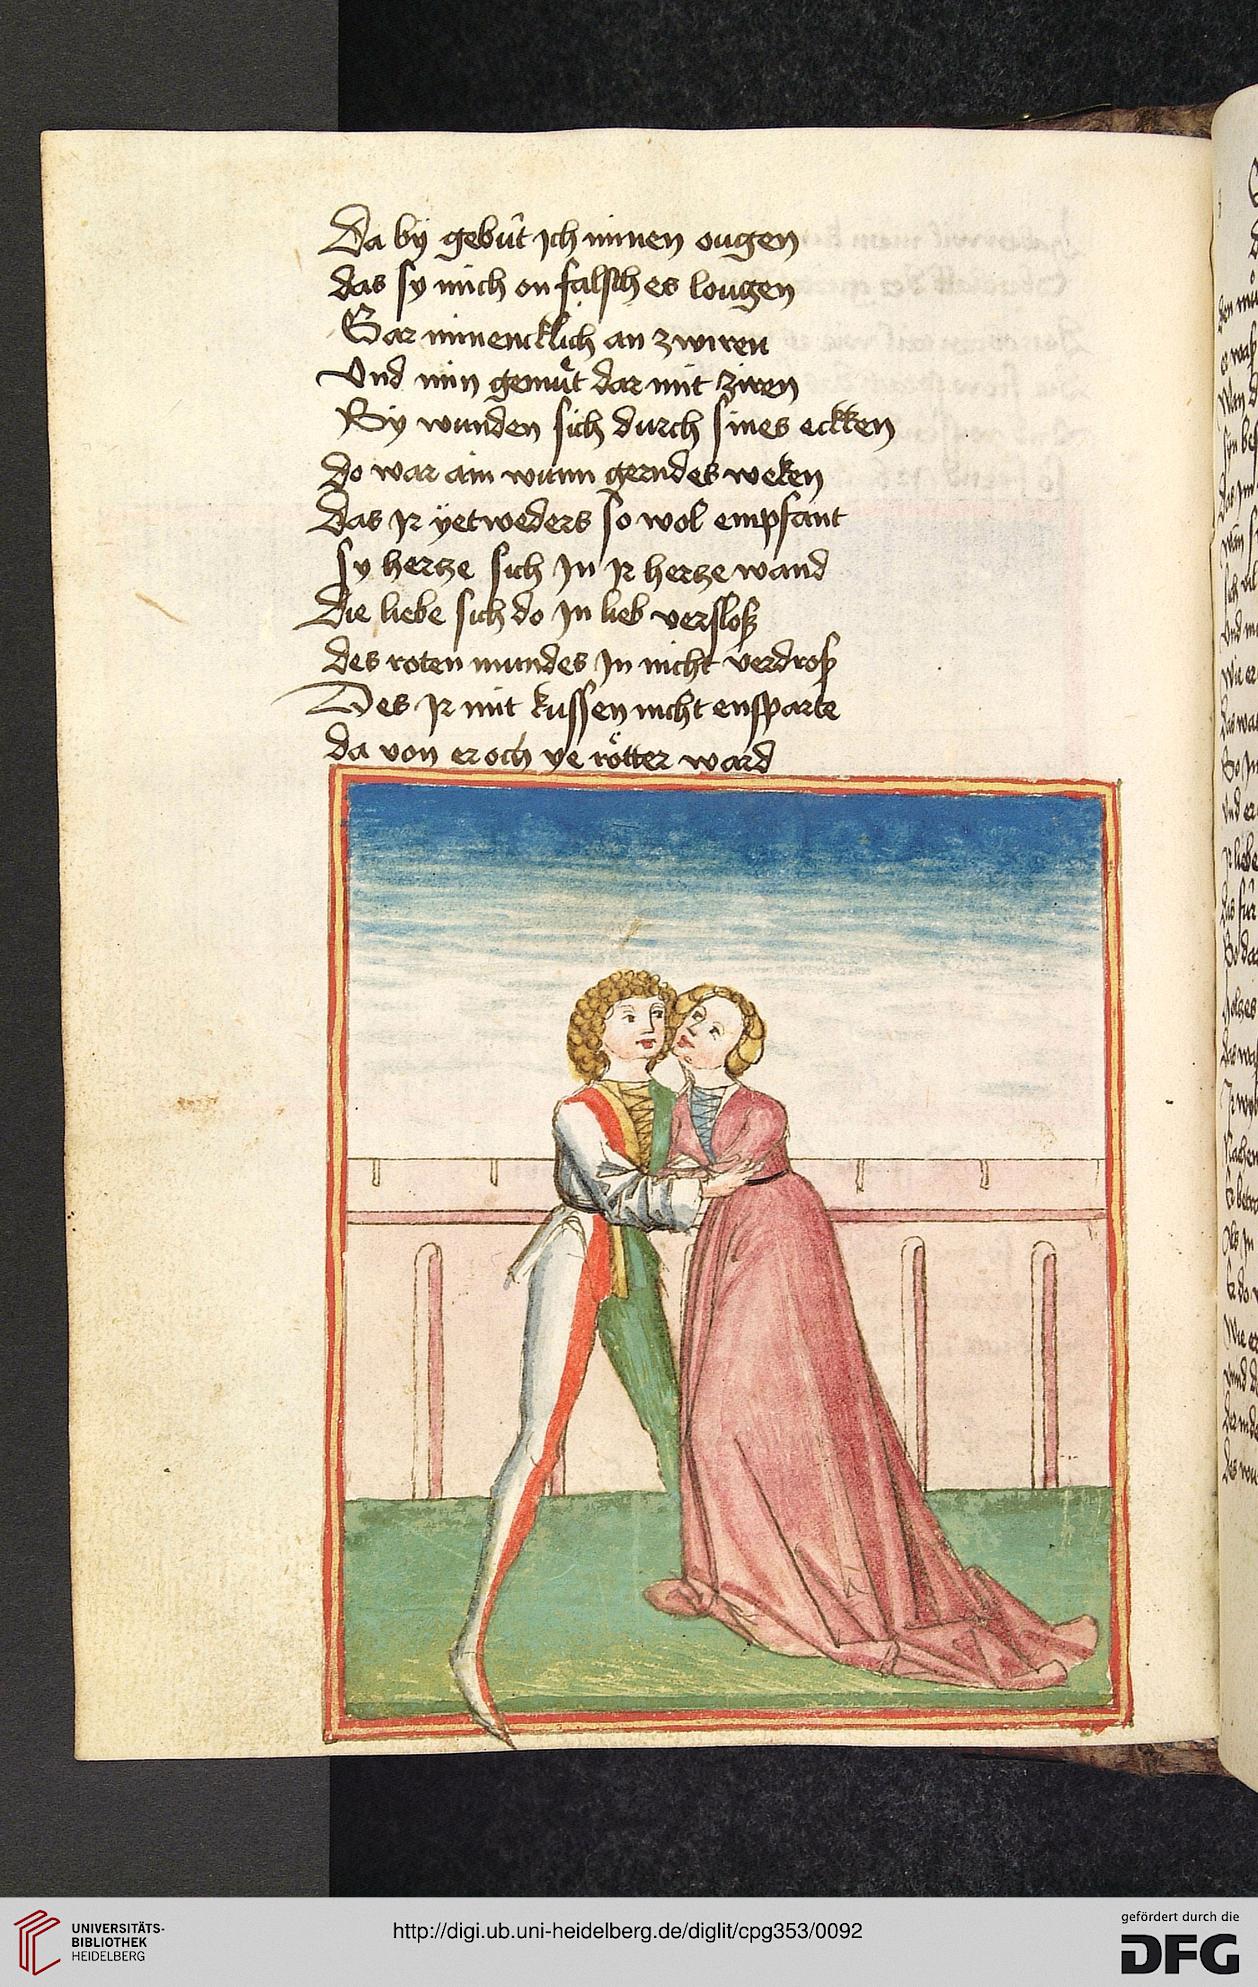 Da by gebut ich minen ougen
das sy mich on falsches lougen
Gar minencklich an zwiren
Vnd min gemuͤt dar mit ziren
By wunden sich durch sines eckken
do war ain wunn gerndes weken
Das Ir yetweders so wol empfant
sy hertze sich In Ir hertze wand
Die liebe sich do In lieb versloß
des roten mundes In nicht verdroß
Des Ir mit kussen nicht ensparte
da von er och ye roͤtter ward
UNIVERSITÄTS-
BIBLIOTHEK
HEIDELBERG
http://digi.ub.uni-heidelberg.de/diglit/cpg353/0092
gefördert durch die
DFG